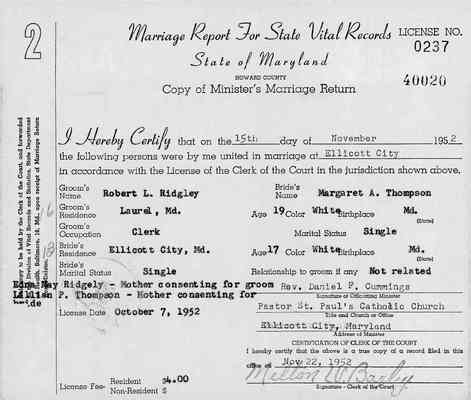 2
Marriage Report For State Vital Records
LICENSE NO.
0237
State of Maryland
HOWARD COUNTY
40020
Copy of Minister's Marriage Return
I Hereby Certify that on the 15th day of November 1952
the following persons were by me united in marriage at Ellicott City
in accordance with the License of the Clerk of the Court in the jurisdiction shown above.
Groom's Name Robert L. Ridgley Bride's Name Margaret A. Thompson
Groom's Residence Laurel, Md. Age 19 Color White Birthplace Md.
(State)
Groom's Occupation Clerk Marital Status Single
Bride's Residence Ellicott City, Md. Age 17 Color White Birthplace Md.
(State)
Bride's Marital Status Single Relationship to groom if any Not related
Edna May Ridgely - Mother consenting for groom
Rev. Daniel P. Cummings
Lillian P. Thompson - Mother consenting for
Signature of Officiating Minister
Pastor St. Paul's Catholic Church
License Date October 7, 1952
Title and Church or Office
Ellicott City, Maryland
Address of Minister
CERTIFICATION OF CLERK OF THE COURT
I hereby certify that the above is a true copy of a record filed in this
office on Nov 22, 1952
License Fee- Resident $4.00
Non-Resident $
Signature - Clerk of the Court
copy to be held by the Clerk of the Court, and forwarded
Division of Vital Records and Statistics, State Department
Health, Baltimore, 18, Md., upon receipt of Marriage Return